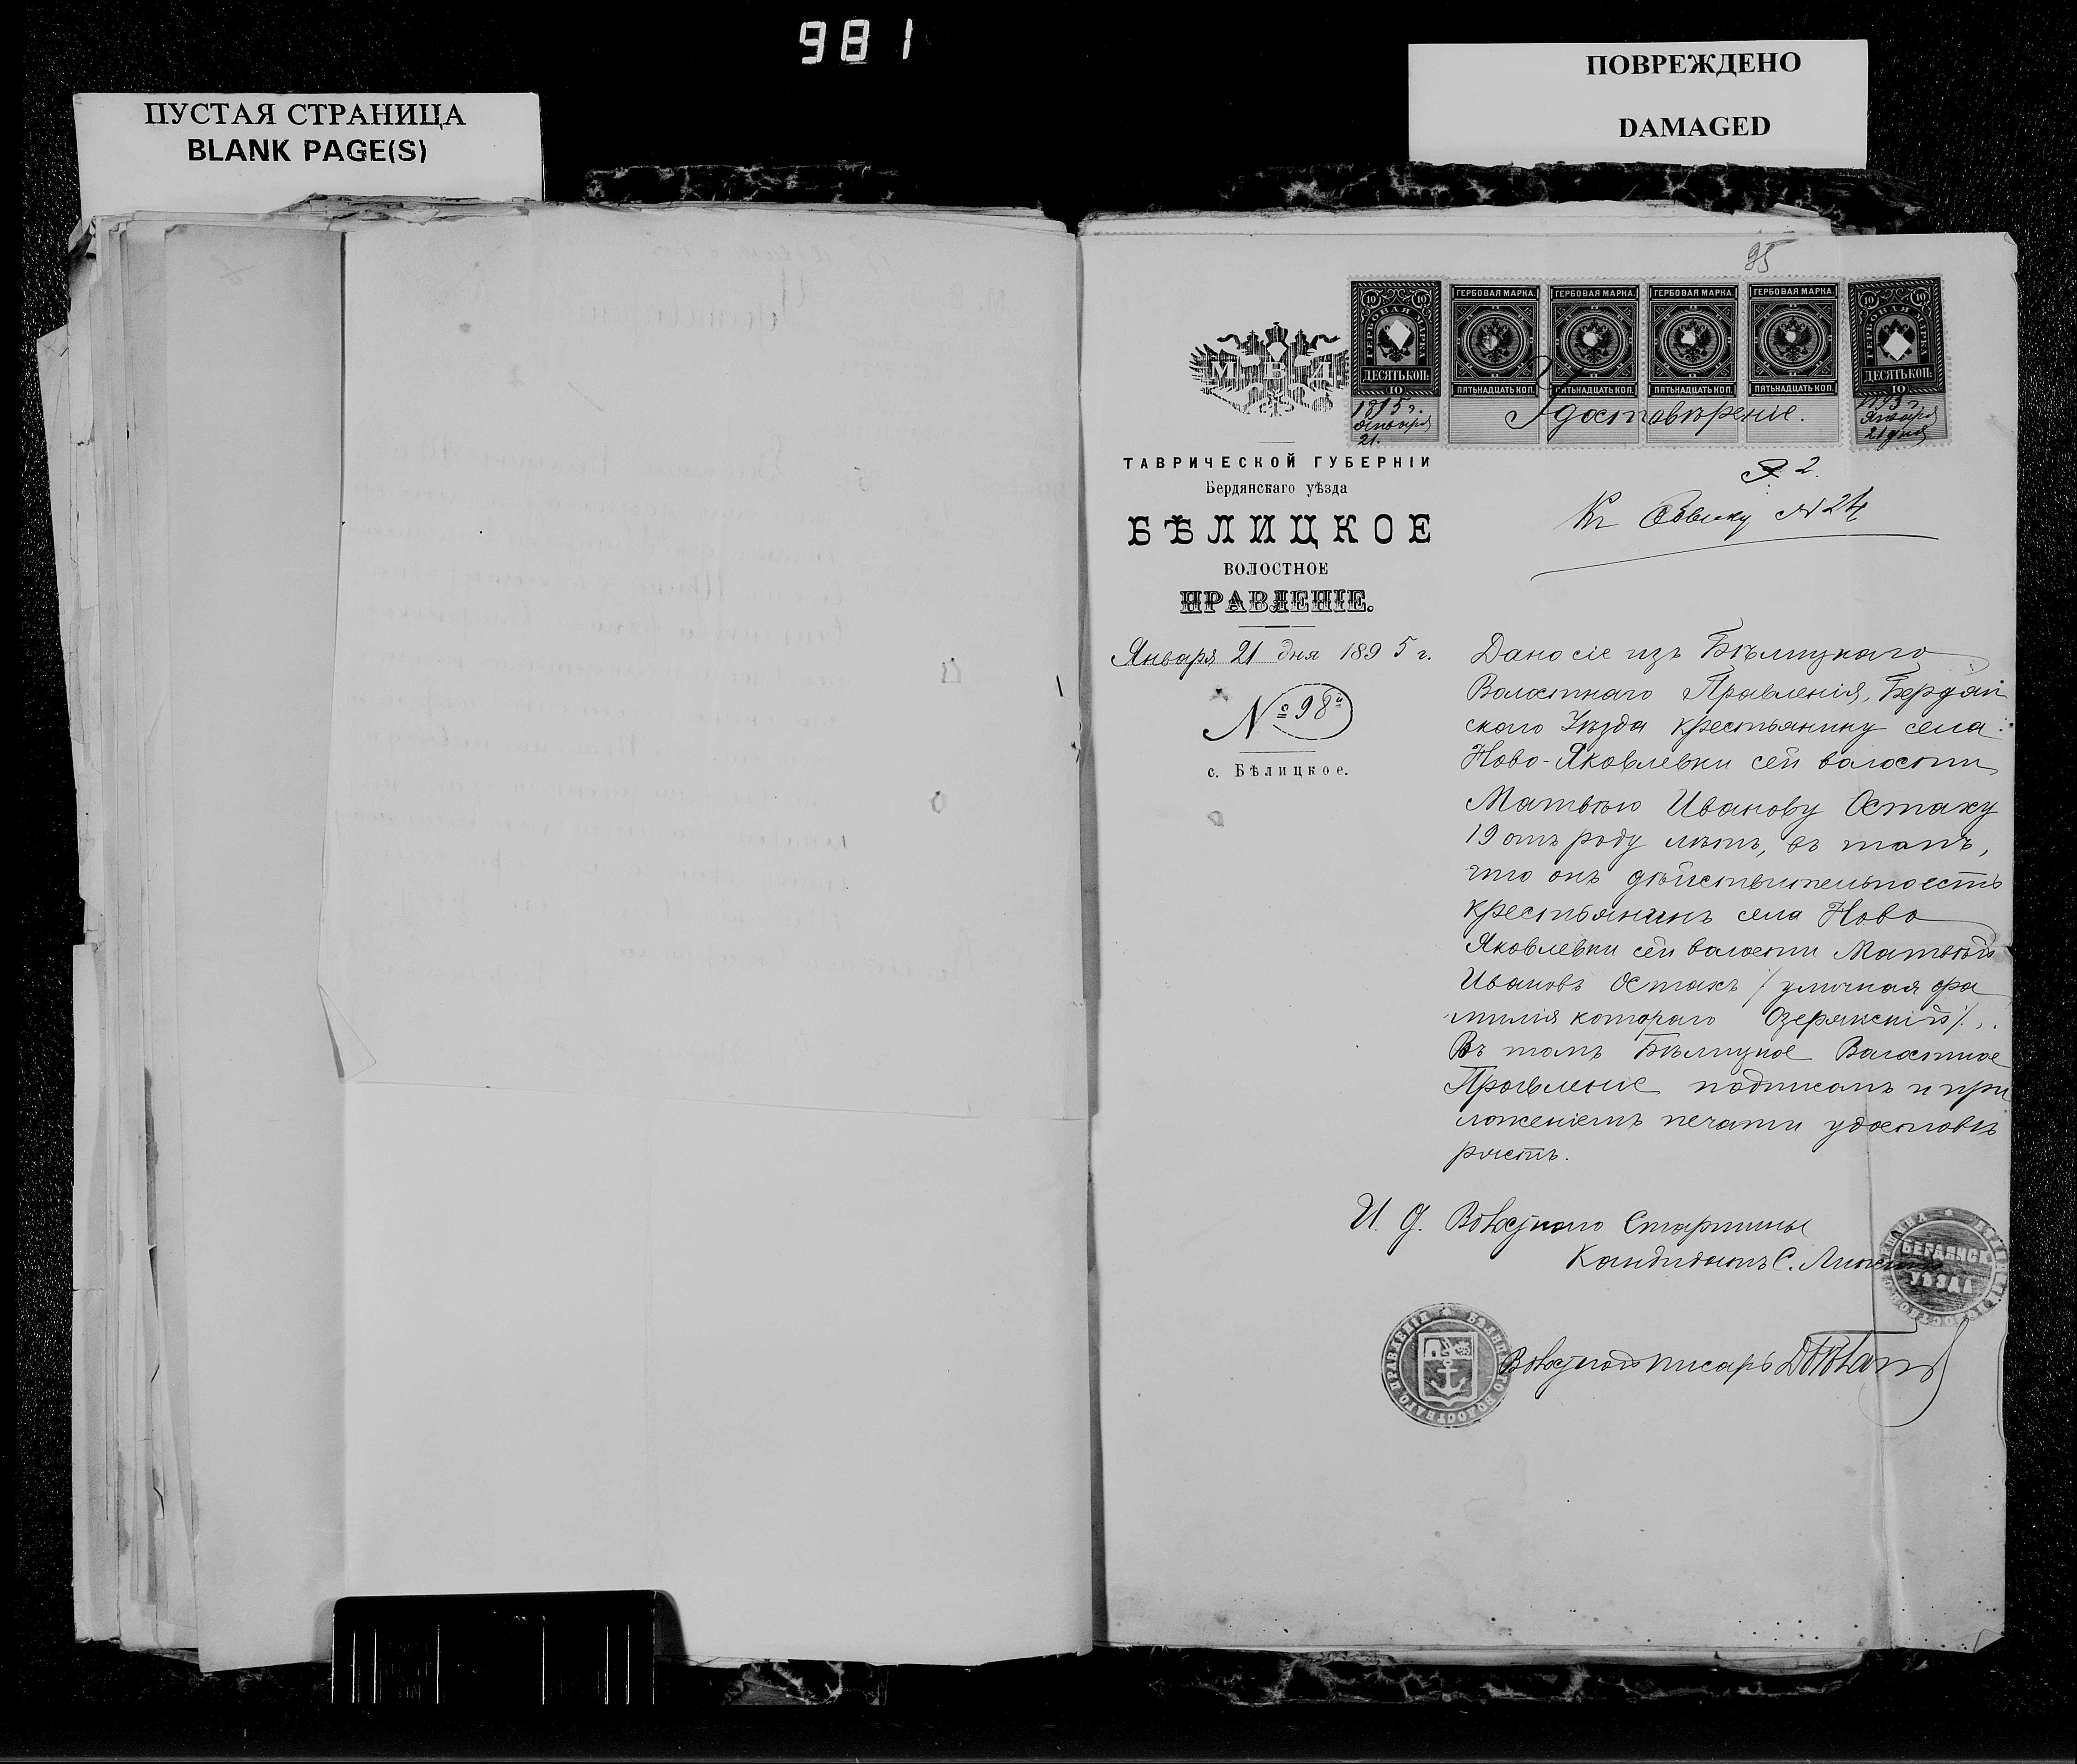 981
ПУСТАЯ СТРАНИЦА
BLANK PAGE(S)
ПОВРЕЖДЕНО
DAMAGED
95
ГЕРБОВАЯ МАРКА.
ГЕРБОВАЯ МАРКА.
ГЕРБОВАЯ МАРКА.
ГЕРБОВАЯ МАРКА.
10 10
ГЕРБОВАЯ МАРКА
ДЕСЯТЬ КОП:
10
ПЯТЬНАДЦАТЬ КОП.
ПЯТЬНАДЦАТЬ КОП.
ПЯТЬНАДЦАТЬ КОП.
ПЯТЬНАДЦАТЬ КОП.
10 10
ГЕРБОВАЯ МАРКА
ДЕСЯТЬ КОП:
10
1895 г.
Января
21.
Января
21 дня
М. В. Д.
Удостовѣреніе.
ТАВРИЧЕСКОЙ ГУБЕРНІИ
Бердянскаго уѣзда
БѢЛИЦКОЕ
ВОЛОСТНОЕ
ПРАВЛЕНІЕ.
Января 21 дня 1895 г.
№ 98
с. Бѣлицкое.
2.
Къ № 24
Дано сіе изъ Бѣлицкаго
Волостнаго Правленія, Бердян
скаго Уѣзда крестьянину села
Ново-Яковлевки сей волости
Матвѣю Иванову Остаку
19 отъ роду лѣтъ, въ томъ,
что онъ дѣйствительно есть
крестьянинъ села Ново
Яковлевки сей волости Матвѣй
Ивановъ Остакъ /уличная фа
милія котораго Озерянскій/.
Въ томъ Бѣлицкое Волостное
Правленіе подписомъ и при
ложеніемъ печати удостовѣ
ряетъ.
И. д. Волостнаго Старшины
Кандидатъ С.
БЕРДЯНСК.
УѢЗДА
Волостной писарь